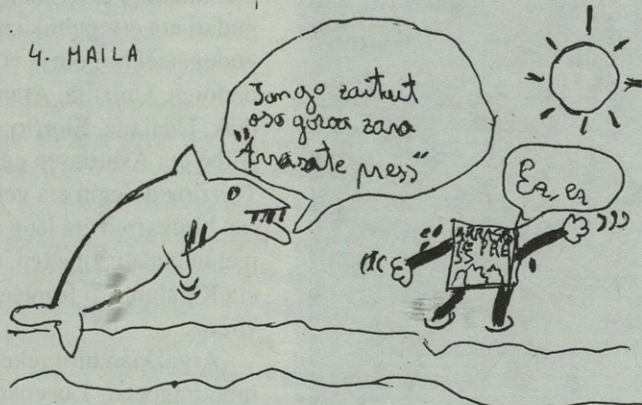 4. MAILA
Jango zaituet
oso goxoa zara
"Arrasate press"
Ez, ez
ARRASA
TE PRE
SS